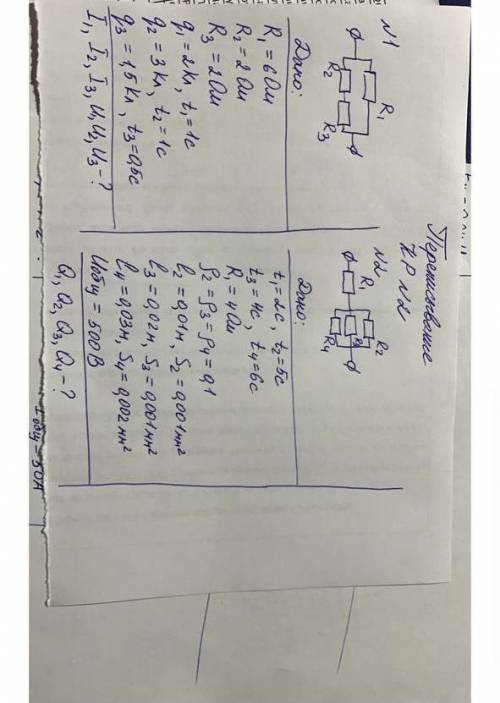 Переписывание
КР №2
№1
R1
R2
R3
Дано:
R1 = 6 Ом
R2 = 2 Ом
R3 = 2 Ом
q1 = 2 Кл, t1 = 1с
q2 = 3 Кл, t2 = 1с
q3 = 1,5 Кл, t3 = 0,5с
I1, I2, I3, U1, U2, U3 - ?
№2
R2
R1
R3
R4
Дано:
t1 = 2с, t2 = 5с
t3 = 4с, t4 = 6с
R1 = 4 Ом
ρ2 = ρ3 = ρ4 = 0,1
l2 = 0,01м, S2 = 0,001мм²
l3 = 0,02м, S3 = 0,001мм²
l4 = 0,03м, S4 = 0,002мм²
Uобщ = 500 В
Q1, Q2, Q3, Q4 - ?
Iобщ = 30А